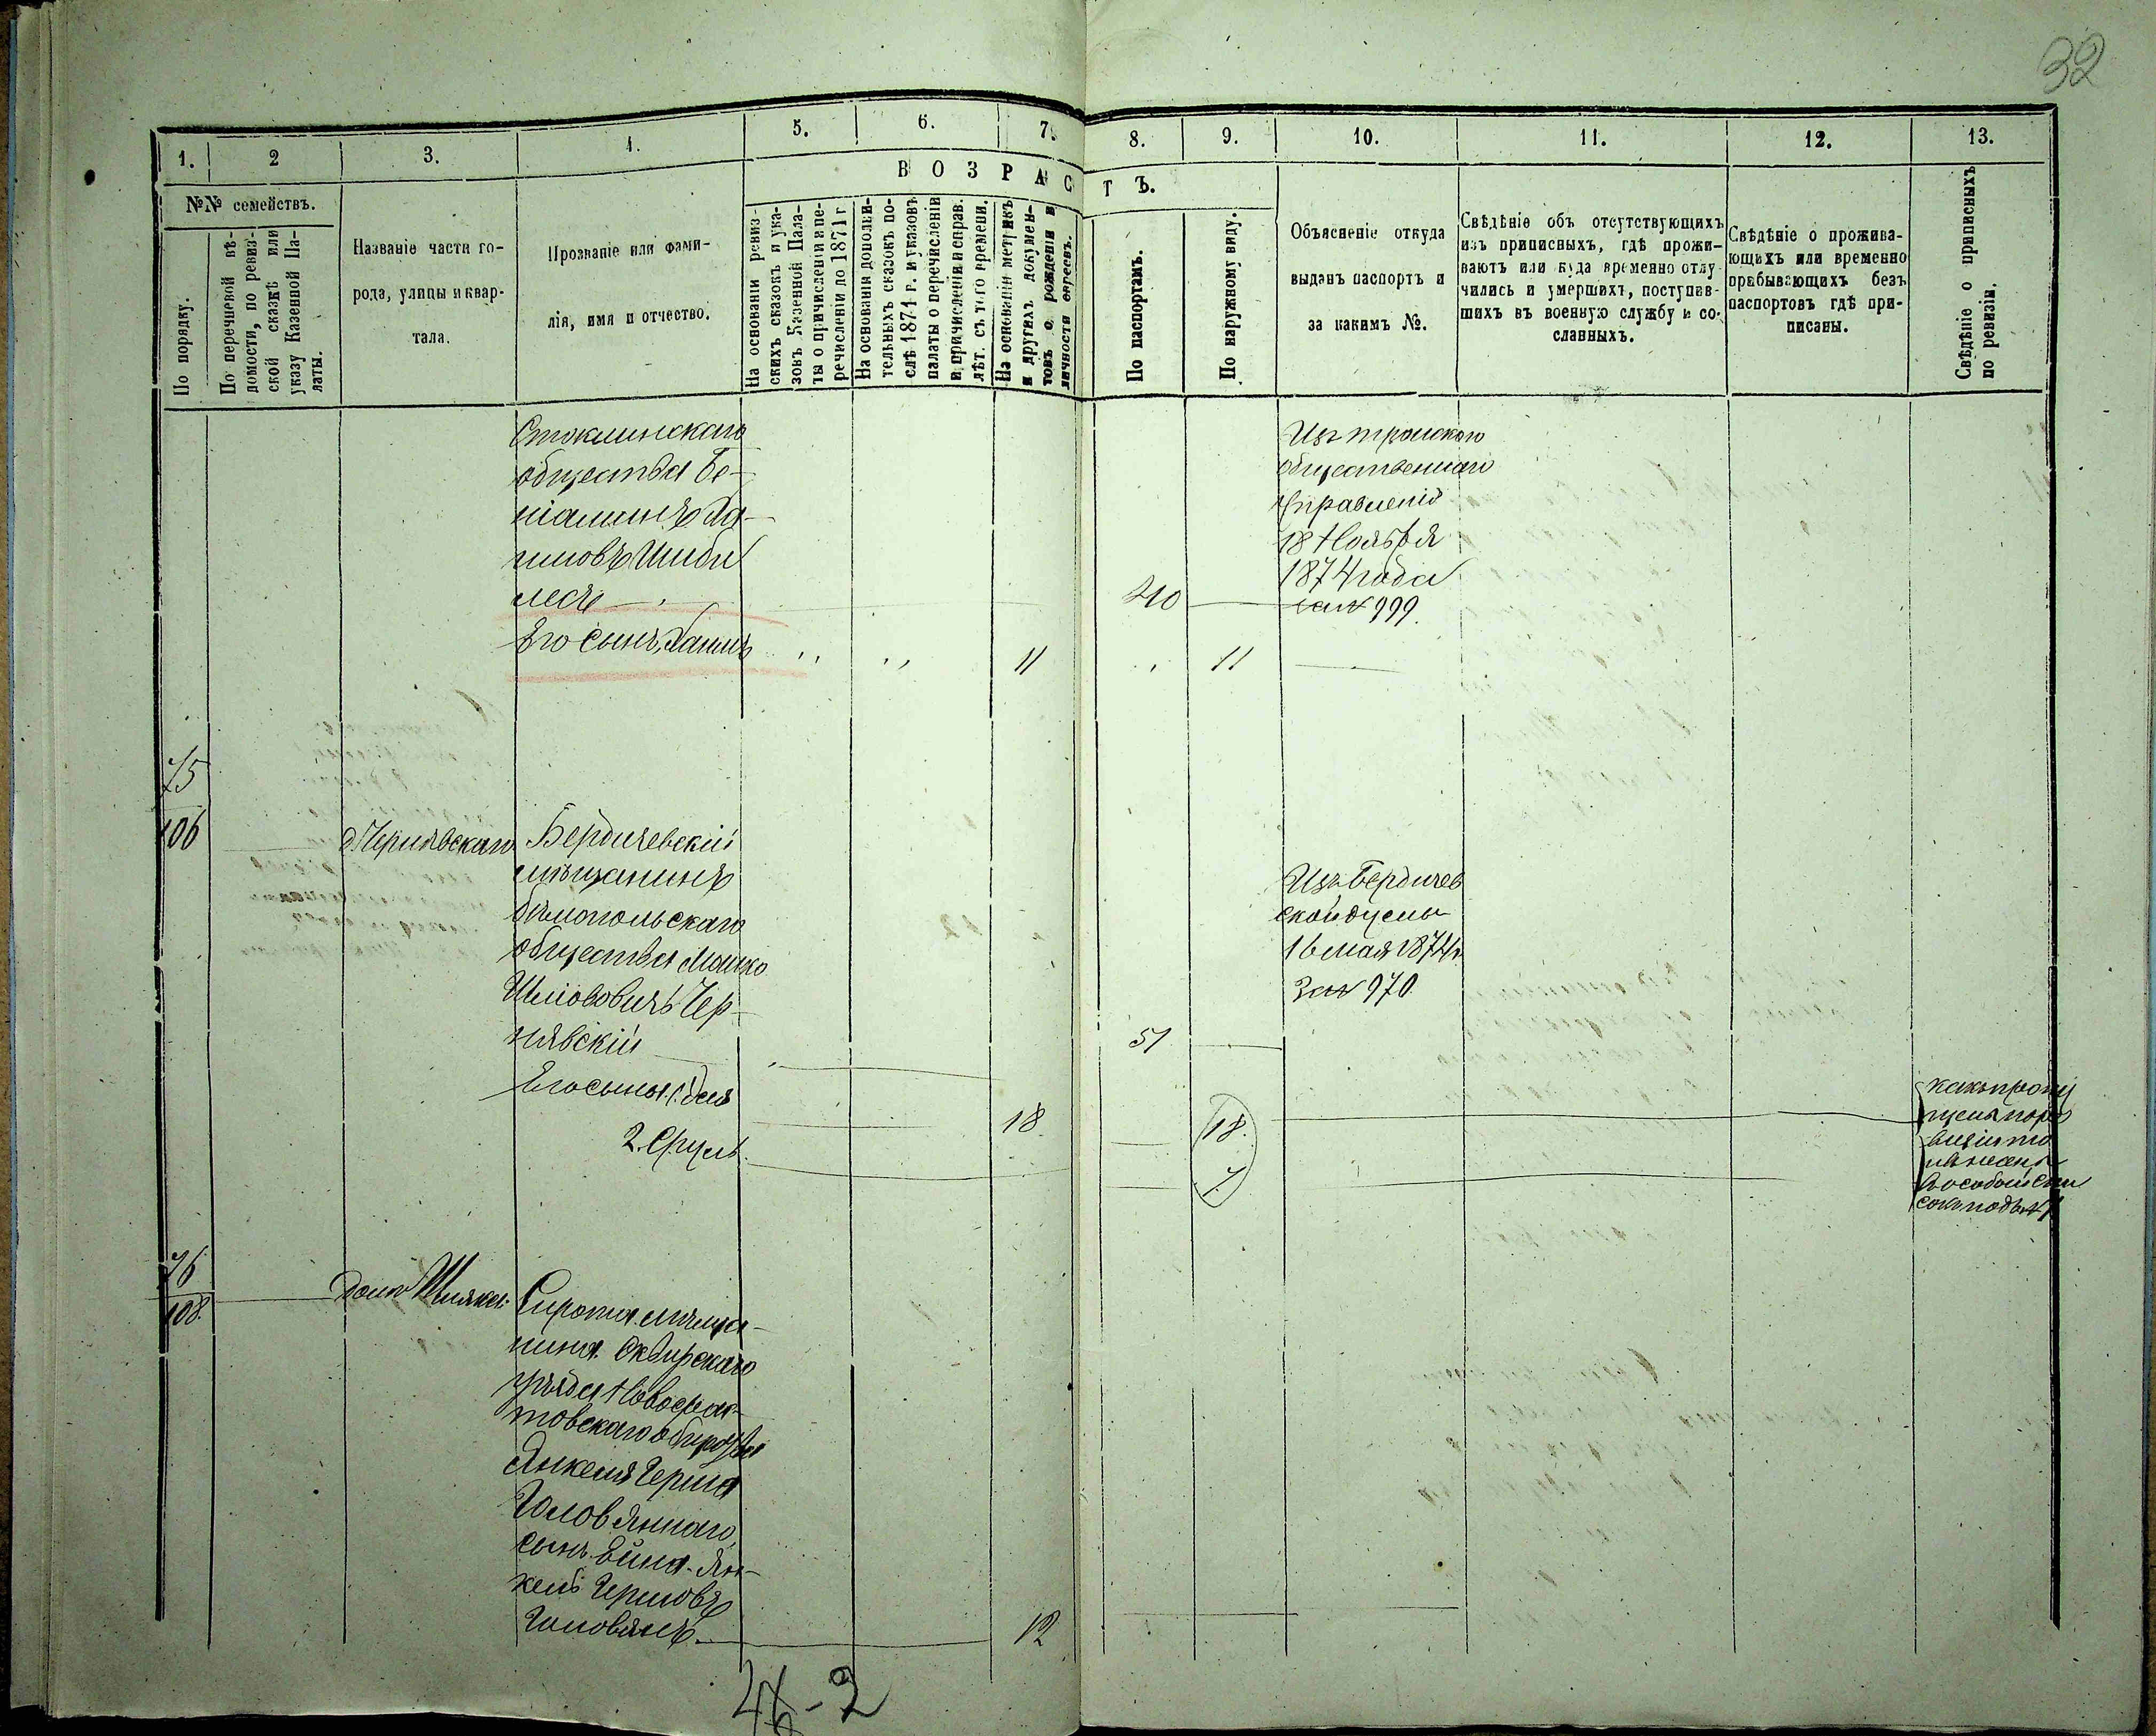 32
1.
2
3.
4.
5.
6.
7.
8.
9.
10.
11.
12.
13.
ВОЗРАСТЪ.
№№ семействъ.
По порядку.
По перечневой вѣ-
домости, по ревиз-
ской сказкѣ или
указу Казенной Па-
латы.
Названіе части го-
рода, улицы и квар-
тала.
Прозваніе или фами-
лія, имя и отчество.
На основаніи ревиз-
скихъ сказокъ и ука-
зовъ Казенной Пала-
ты о причисленіи и пе-
речисленіи до 1871 г.
На основаніи дополни-
тельныхъ сказокъ по-
слѣ 1871 г. и указовъ
палаты о перечисленіи
и причисленіи и справ.
лѣт. съ того времени.
На основаніи метрикъ
и другихъ докумен-
товъ о рожденіи и
личности евреевъ.
По паспортамъ.
По наружному виду.
Объясненіе откуда
выданъ паспортъ и
за какимъ №.
Свѣдѣніе объ отсутствующихъ
изъ приписныхъ, гдѣ прожи-
ваютъ или куда временно отлу-
чились и умершихъ, поступив-
шихъ въ военную службу и со-
сланныхъ.
Свѣдѣніе о прожива-
ющихъ или временно
пребывающихъ безъ
паспортовъ гдѣ при-
писаны.
Свѣдѣніе о приписныхъ
по ревизіи.
общества Бе-
ніаминъ Ха-
имовъ
Его сынъ Хаимъ 11 11
40
общественнаго
Управленія
18 Ноября
1874 года
за № 999.
75
106
д. Чернявскаго
Бердичевскій
мѣщанинъ
бѣлопольскаго
общества Мошко
Шліововичъ Чер-
нявскій
51
Изъ Бердичев
ской думы
16 мая 1874 г.
За № 970
Его сыны: 1.
18 18.
2. Сруль
7
какъ пропу
щены по ре
визіи то
въ особый спи
сокъ подъ №
76
108.
домъ
Сирота мѣща-
нина Сквирскаго
уѣзда Новофас-
товскаго общества
Янкеля Герша
Головяннаго
сынъ
кель Гершовъ
12
46-2